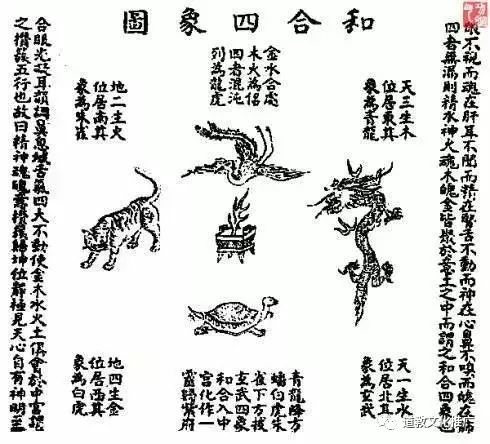 和合四象圖
眼不視而魂在肝耳不聞而精在腎舌不動而神在心鼻不嗅而魄在肺
四者無漏則精水神火魂木魄金皆聚於意土之中而謂之和合四象也
天三生木
位居東其
象為青龍
金水合處
木火為侶
四者混沌
列為龍虎
地二生火
位居南其
象為朱雀
天一生水
位居北其
象為玄武
青龍降方
蟠白虎朱
雀下方披
玄武四象
和合入中
宮化作一
靈歸紫府
地四生金
位居西其
象為白虎
合眼光凝耳韻調鼻息緘舌氣四大不動使金木水火土俱會於中宮謂
之攢簇五行也故曰精神魂魄意攢簇歸坤位靜極見天心自有神明至
道教文化推广